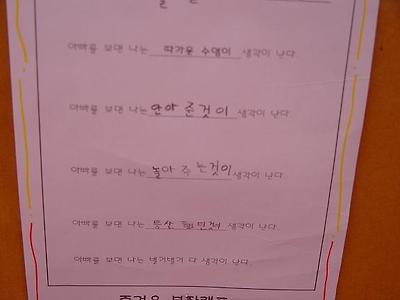 아빠를 보면 나는 따가운 수염이 생각이 난다.
아빠를 보면 나는 안아 준것이 생각이 난다.
아빠를 보면 나는 놀아 주는것이 생각이 난다.
아빠를 보면 나는 등산 생각이 난다.
아빠를 보면 나는 생각이 난다.